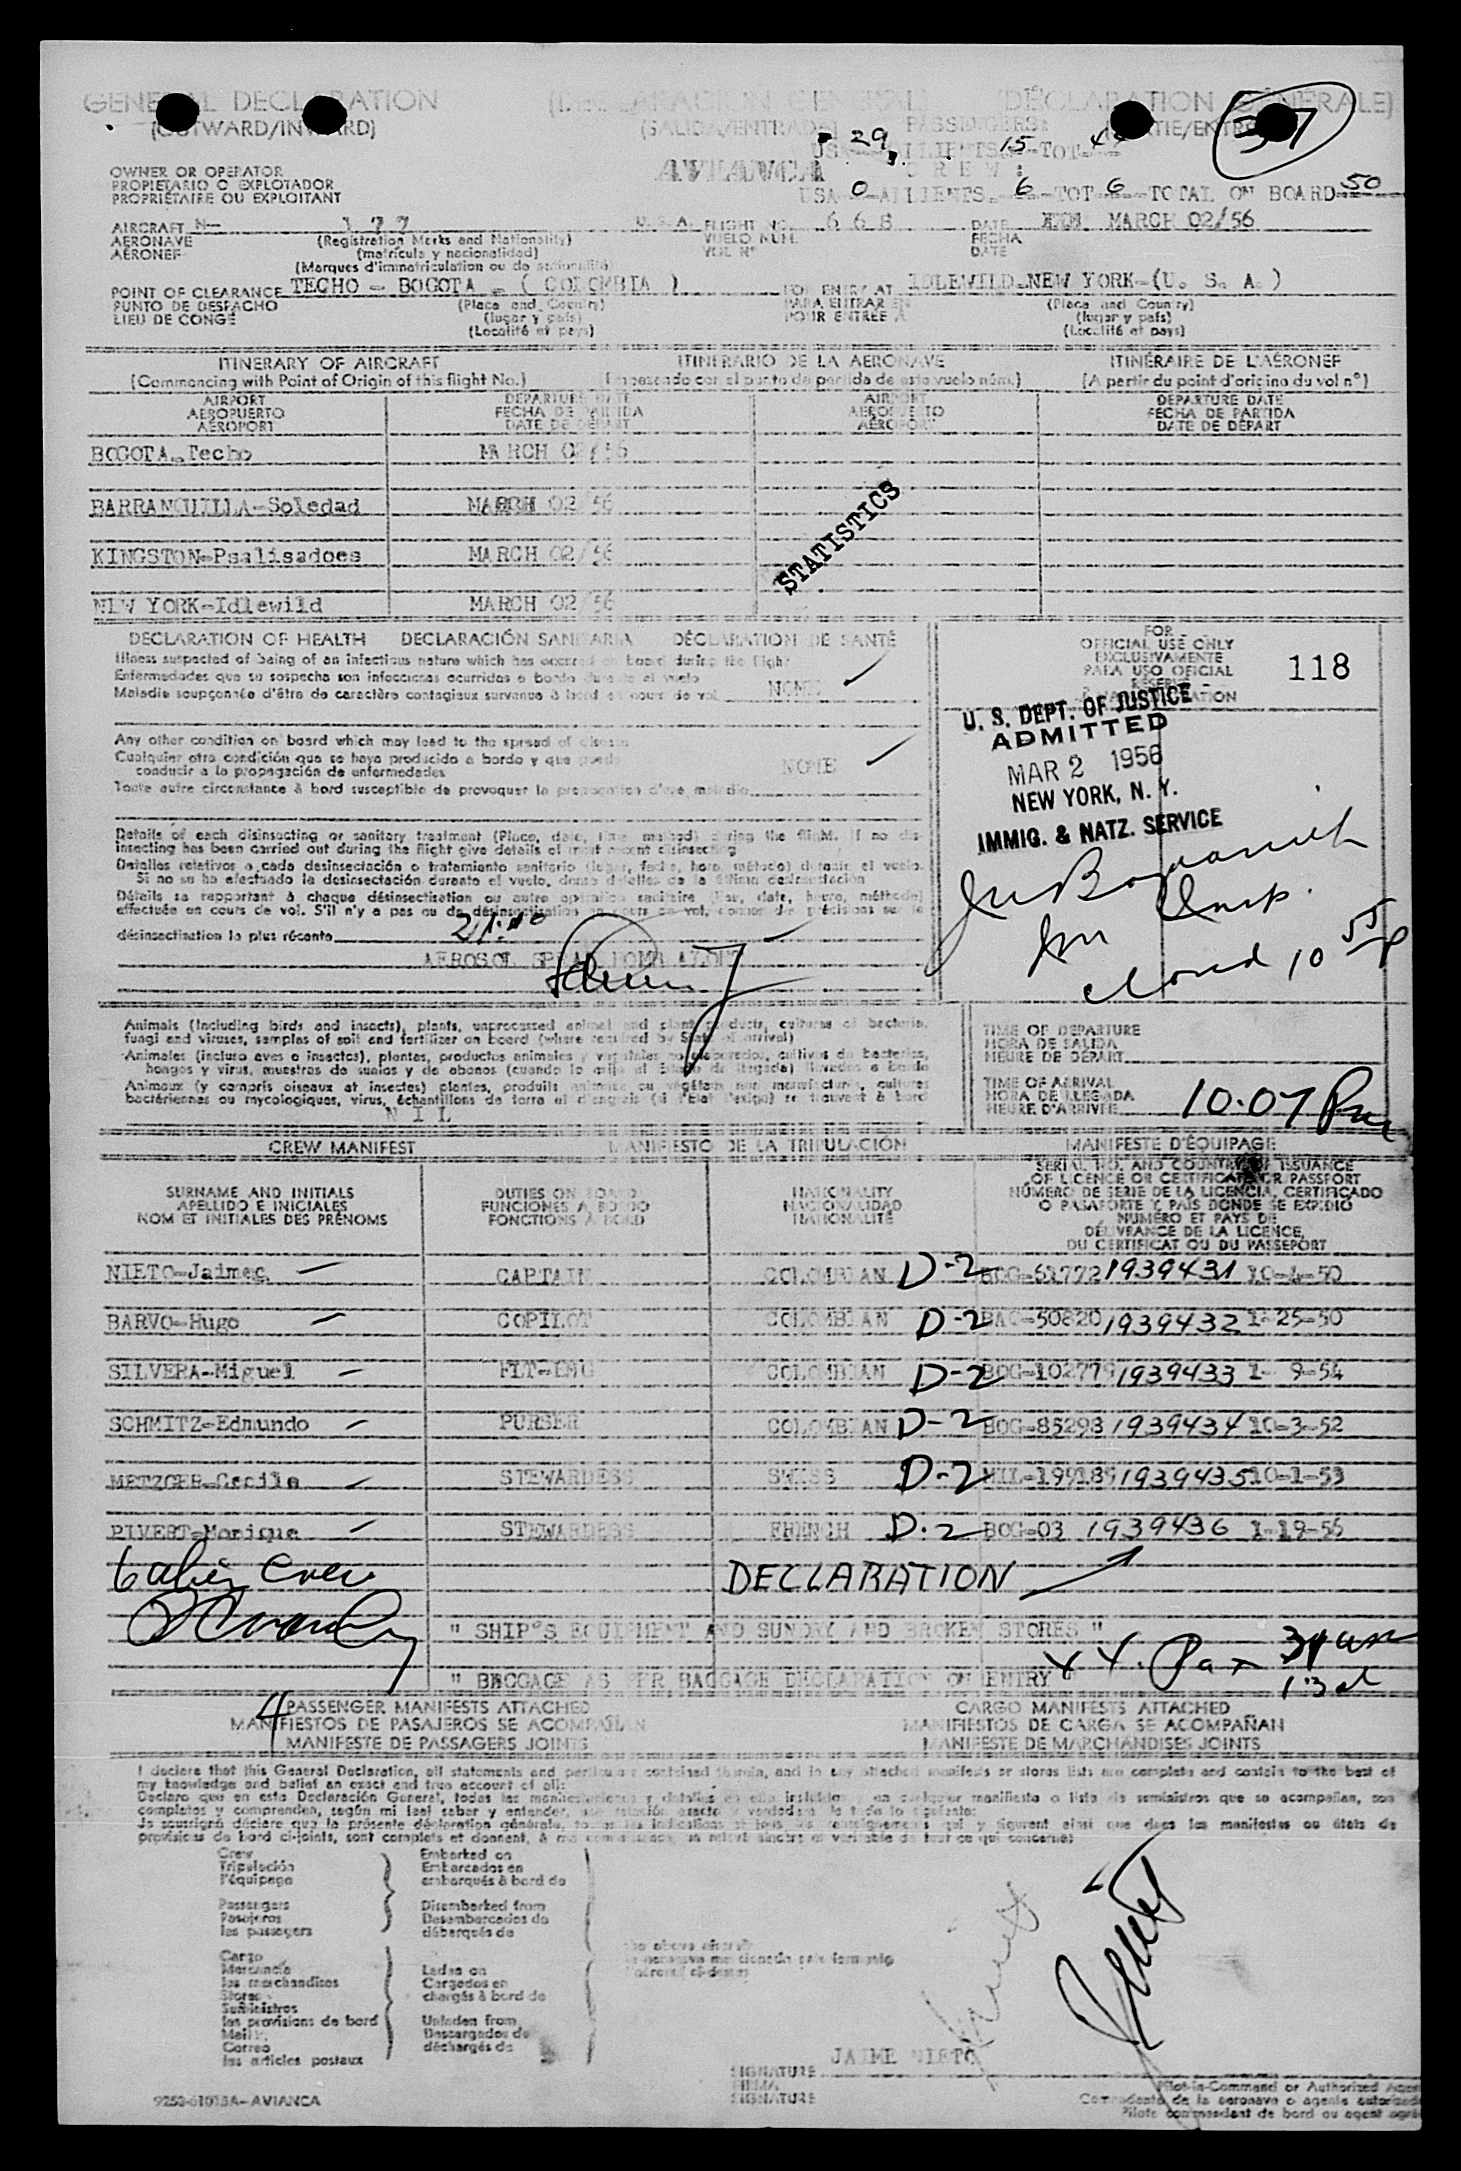 GENERAL DECLARATION (DECLARACION GENERAL) (DÉCLARATION GÉNÉRALE)
(OUTWARD/INWARD) (SALIDA/ENTRADA) PASSENGERS:
37
29 15 TOT 44
OWNER OR OPERATOR
PROPIETARIO O EXPLOTADOR
PROPRIÉTAIRE OU EXPLOITANT
AVIANCA
CREW:
USA 0 ALLIENTS 6 TOT 6 TOTAL ON BOARD 50
AIRCRAFT N- 177 U.S.A. FLIGHT NO. 668 DATE MARCH 02/56
AERONAVE (Registration Marks and Nationality) VUELO NUM. FECHA
AÉRONEF (matrícula y nacionalidad) VOL Nº DATE
(Marques d'immatriculation ou de nationalité)
POINT OF CLEARANCE TECHO - BOGOTA - ( COLOMBIA ) FOR ENTRY AT IDLEWILD-NEW YORK-(U. S. A. )
PUNTO DE DESPACHO (Place and Country) PARA ENTRAR EN (Place and Country)
LIEU DE CONGÉ (lugar y país) POUR ENTRÉE A (lugar y país)
(Localité et pays) (Localité et pays)
ITINERARY OF AIRCRAFT ITINERARIO DE LA AERONAVE ITINÉRAIRE DE L'AÉRONEF
(Commencing with Point of Origin of this flight No.) (Empezando con el punto de partida de este vuelo núm.) (A partir du point d'origine du vol nº)
AIRPORT DEPARTURE DATE AIRPORT DEPARTURE DATE
AEROPUERTO FECHA DE PARTIDA AEROPUERTO FECHA DE PARTIDA
AÉROPORT DATE DE DÉPART AÉROPORT DATE DE DÉPART
BOGOTA-Techo MARCH 02/56
BARRANQUILLA-Soledad MARCH 02/56
KINGSTON-Psalisadoes MARCH 02/56
NEW YORK-Idlewild MARCH 02/56
STATISTICS
DECLARATION OF HEALTH DECLARACIÓN SANITARIA DÉCLARATION DE SANTÉ
Illness suspected of being of an infectious nature which has occurred on board during the flight
Enfermedades que se sospecha son infecciosas ocurridas a bordo durante el vuelo
Maladie soupçonnée d'être de caractère contagieux survenue à bord en cours de vol NONE
Any other condition on board which may lead to the spread of disease
Cualquier otra condición que se haya producido a bordo y que pueda
conducir a la propagación de enfermedades NONE
Toute autre circonstance à bord susceptible de provoquer la propagation d'une maladie
Details of each disinsecting or sanitary treatment (Place, date, time, method) during the flight. If no dis-
insecting has been carried out during the flight give details of most recent disinsecting
Detalles relativos a cada desinsectación o tratamiento sanitario (lugar, fecha, hora, método) durante el vuelo.
Si no se ha efectuado la desinsectación durante el vuelo, dense detalles de la última desinsectación
Détails se rapportant à chaque désinsectisation ou autre opération sanitaire (lieu, date, heure, méthode)
effectuée en cours de vol. S'il n'y a pas eu de désinsectisation en cours de vol, donner des précisions sur la
désinsectisation la plus récente
AEROSOL
FOR
OFFICIAL USE ONLY
EXCLUSIVAMENTE
PARA USO OFICIAL
118
U. S. DEPT. OF JUSTICE
ADMITTED
MAR 2 1956
NEW YORK, N. Y.
IMMIG. & NATZ. SERVICE
Imm Insp.
closed 10 55 P
Animals (including birds and insects), plants, unprocessed animal and plant products, cultures of bacteria,
fungi and viruses, samples of soil and fertilizer on board (where required by State of arrival)
Animales (incluso aves o insectos), plantas, productos animales y vegetales no elaborados, cultivos de bacterias,
hongos y virus, muestras de suelos y de abonos (cuando lo exija el Estado de llegada) llevados a bordo
Animaux (y compris oiseaux et insectes) plantes, produits animaux ou végétaux non manufacturés, cultures
bactériennes ou mycologiques, virus, échantillons de terre et d'engrais (si l'Etat l'exige) se trouvant à bord
N I L
TIME OF DEPARTURE
HORA DE SALIDA
HEURE DE DÉPART
TIME OF ARRIVAL
HORA DE LLEGADA
HEURE D'ARRIVÉE 10.07 Pm
CREW MANIFEST MANIFIESTO DE LA TRIPULACIÓN MANIFESTE D'ÉQUIPAGE
SURNAME AND INITIALS DUTIES ON BOARD NATIONALITY SERIAL NO. AND COUNTRY OF ISSUANCE
APELLIDO E INICIALES FUNCIONES A BORDO NACIONALIDAD OF LICENCE OR CERTIFICATE OR PASSPORT
NOM ET INITIALES DES PRÉNOMS FONCTIONS A BORD NATIONALITÉ NÚMERO DE SERIE DE LA LICENCIA, CERTIFICADO
O PASAPORTE Y PAÍS DONDE SE EXPIDIÓ
NUMÉRO ET PAYS DE
DÉLIVRANCE DE LA LICENCE,
DU CERTIFICAT OU DU PASSEPORT
NIETO-Jaimec CAPTAIN COLOMBIAN D-2 BOG-61772 1939431 10-4-50
BARVO-Hugo COPILOT COLOMBIAN D-2 BAC-50820 1939432 1-25-50
SILVERA-Miguel FLT-ENG COLOMBIAN D-2 BOG-102779 1939433 1-9-54
SCHMITZ-Edmundo PURSER COLOMBIAN D-2 BOG-85298 1939434 10-3-52
METZGER-Cecile STEWARDESS SWISS D-2 MIL-199189 1939435 10-1-53
PIVERT-Monique STEWARDESS FRENCH D-2 BOG-03 1939436 1-19-56
DECLARATION
" SHIP'S EQUIPMENT AND SUNDRY AND BROKEN STORES "
" BAGGAGE AS PER BAGGAGE DECLARATION ON ENTRY "
44. Pax
4 PASSENGER MANIFESTS ATTACHED CARGO MANIFESTS ATTACHED
MANIFIESTOS DE PASAJEROS SE ACOMPAÑAN MANIFIESTOS DE CARGA SE ACOMPAÑAN
MANIFESTE DE PASSAGERS JOINTS MANIFESTE DE MARCHANDISES JOINTS
I declare that this General Declaration, all statements and particulars contained therein, and in any attached manifests or stores lists are complete and contain to the best of
my knowledge and belief an exact and true account of all:
Declaro que en esta Declaración General, todas las
completos y comprenden, según mi leal saber y entender, una relación exacta y verdadera de todo lo siguiente:
Je soussigné déclare que la présente déclaration générale,
provisions de bord ci-joints, sont complets et donnent,
Crew Embarked on
Tripulación Embarcados en
l'équipage embarqués à bord de
Passengers Disembarked from
Pasajeros Desembarcados de
les passagers débarqués de
Cargo
Mercancía Laden on
les marchandises Cargados en
Stores chargés à bord de
Suministros
les provisions de bord Unladen from
Mail Descargados de
Correo déchargés de
les articles postaux
the above aircraft
JAIME NIETO
SIGNATURE
FIRMA
SIGNATURE
Pilot-in-Command or Authorized Agent
Comandante de la aeronave o agente autorizado
Pilote commandant de bord ou agent agréé
9253-61013A-AVIANCA